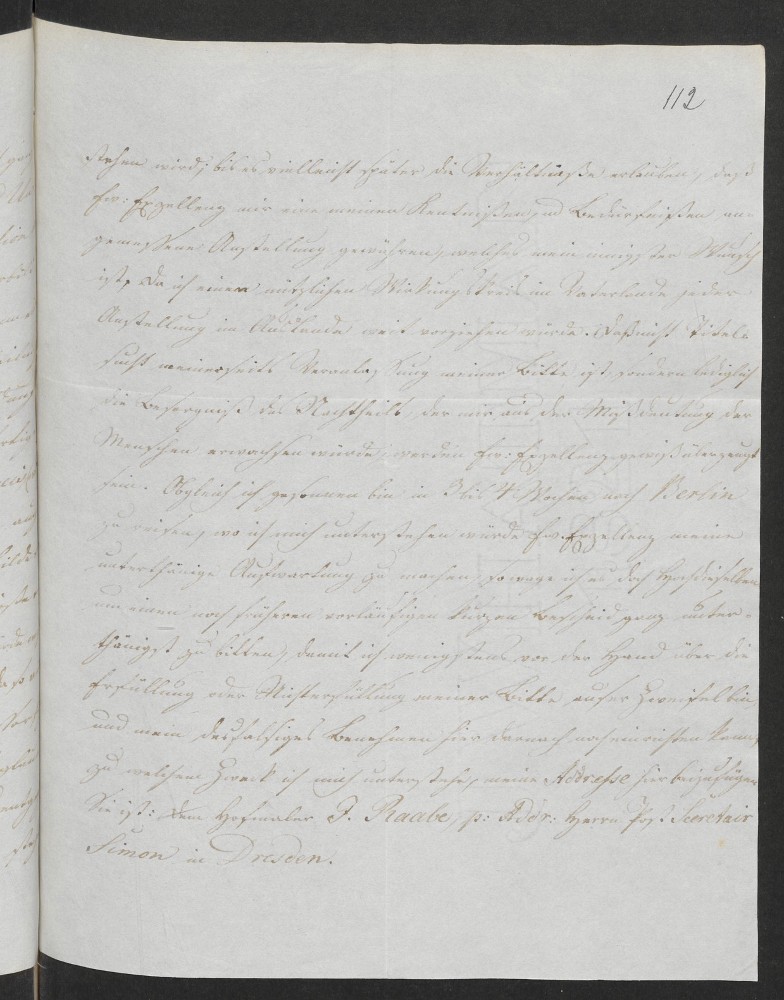 112
stehen wird, bis es vielleicht später die Verhältniße erlauben, daß
Ew: Exzellenz mir eine meinen Kentnißen und Bedürfnißen an-
gemessene Anstellung gewähren, welches mein innigster Wunsch
ist, da ich einen nützlichen Wirkungskreis im Vaterlande jeder
Anstellung im Auslande weit vorziehen würde. Daß nicht Titel-
sucht meinerseits Veranlassung meiner Bitte ist, sondern lediglich
die Besorgniß des Nachtheils, der mir aus der Mißdeutung der
Menschen erwachsen würde, werden Ew: Exzellenz gewiß überzeugt
sein. Obgleich ich gesonnen bin in 3 bis 4 Wochen nach Berlin
zu reisen, wo ich mich unterstehen würde Ew. Exzellenz meine
unterthänige Aufwartung zu machen, so wage ich es doch Hochdieselben
um einen noch früheren vorläufigen kurzen Bescheid ganz unter-
thänigst zu bitten, damit ich wenigstens vor der Hand über die
Erfüllung oder Nichterfüllung meiner Bitte außer Zweifel bin
und mein desfalsiges Benehmen hier darnach einrichten kann,
zu welchem Zweck ich mich unterstehe, meine Addresse hier beizufügen
Sie ist: Dem Hofmaler J. Raabe, p: Addr: Herrn Post Secretair
Simon in Dresden.